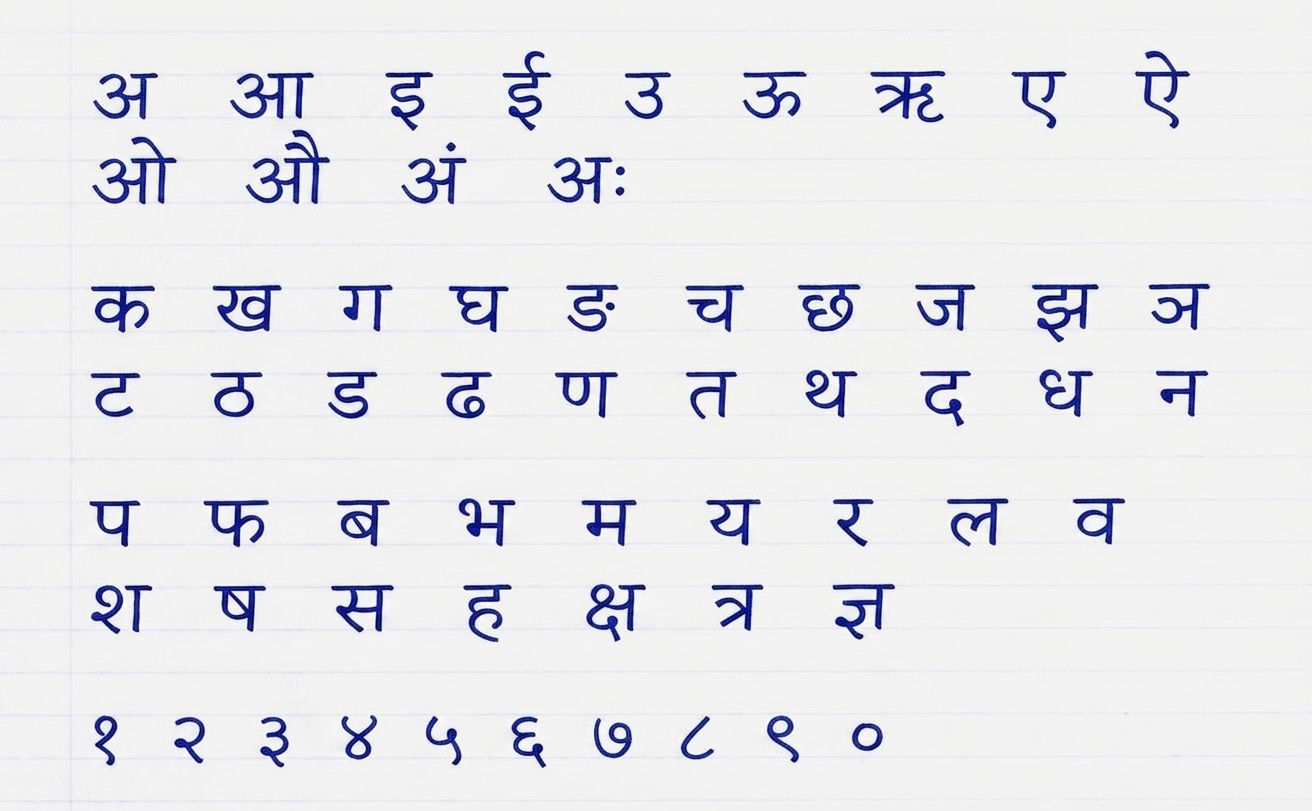 अ आ इ ई उ ऊ ऋ ए ऐ
ओ औ अं अः
क ख ग घ ङ च छ ज झ ञ
ट ठ ड ढ ण त थ द ध न
प फ ब भ म य र ल व
श ष स ह क्ष त्र ज्ञ
१ २ ३ ४ ५ ६ ७ ८ ९ ०